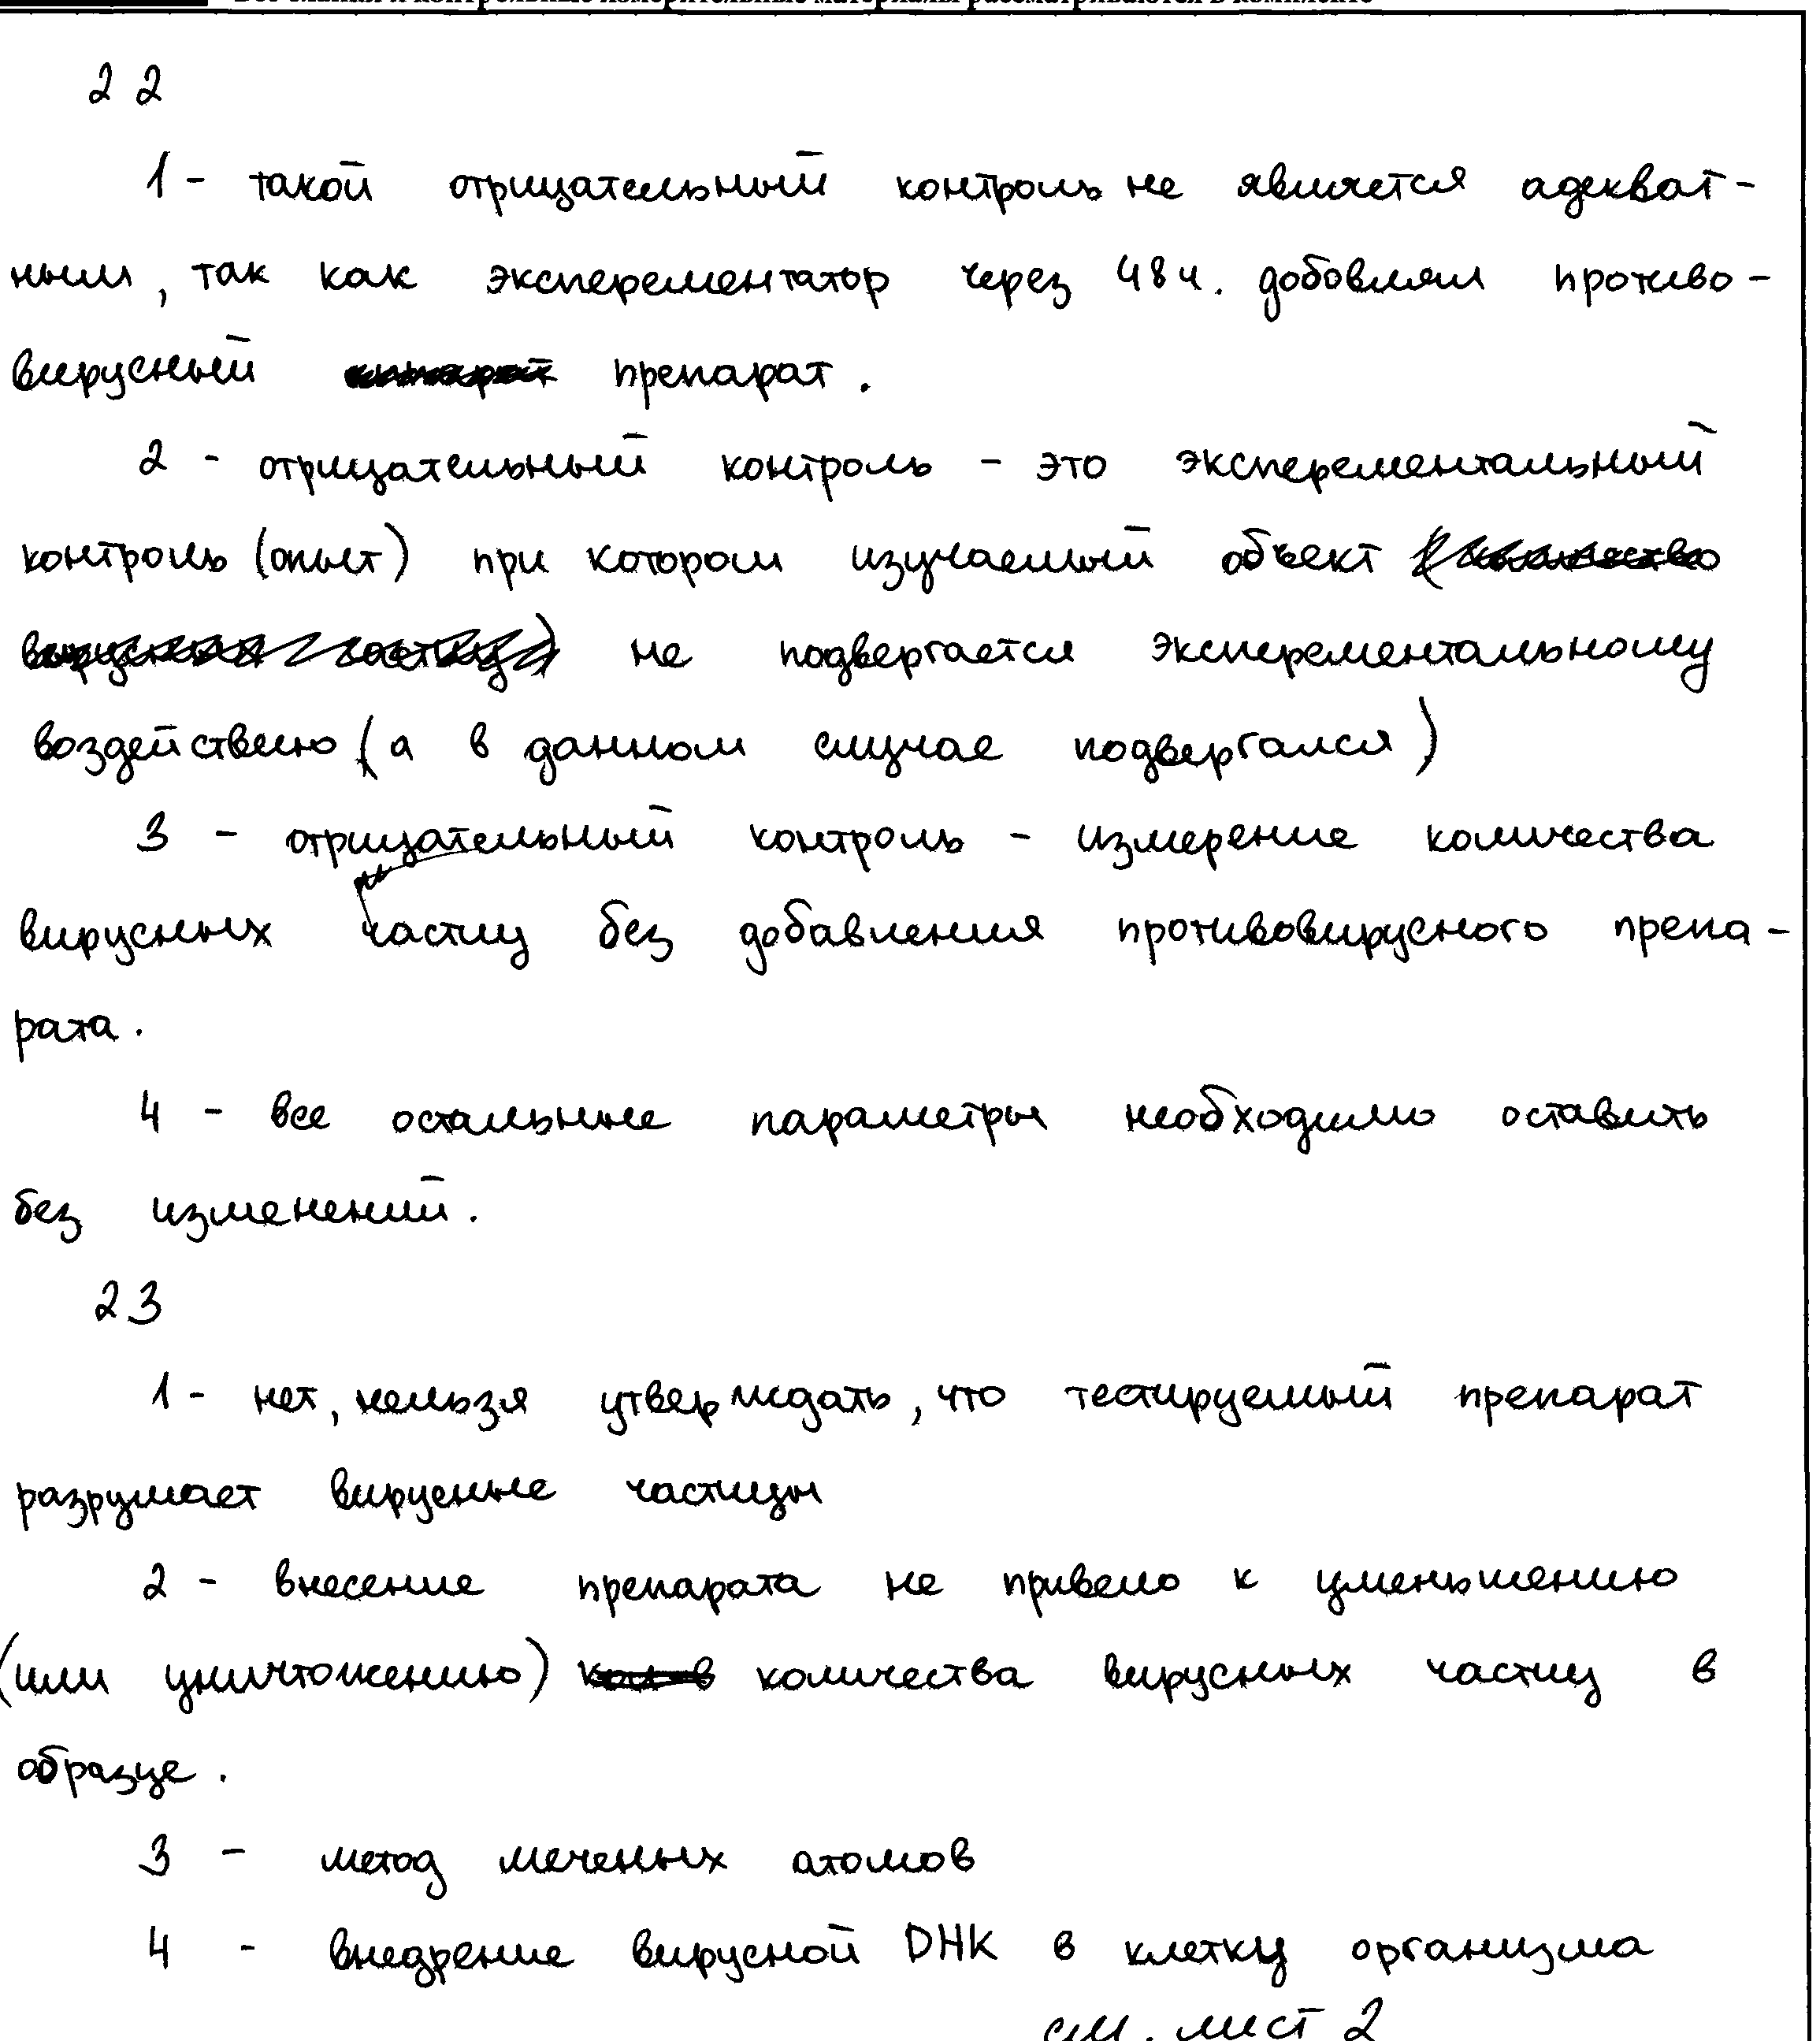 Все бланки и контрольные измерительные материалы рассматриваются в комплекте
22
1 - такой отрицательный контроль не является адекват-
ным, так как эксперементатор через 48 ч. добовлял противо-
вирусный препарат.
2 - отрицательный контроль - это эксперементальный
контроль (опыт) при котором изучаемый объект
не подвергается эксперементальному
воздействию (а в данном случае подвергался)
3 - отрицательный контроль - измерение количества
вирусных частиц без добавления противовирусного препа-
рата.
4 - все остальные параметры необходимо оставить
без изменений.
23
1 - нет, нельзя утверждать, что тестируемый препарат
разрушает вирусные частицы
2 - внесение препарата не привело к уменьшению
(или уничтожению) количества вирусных частиц в
образце.
3 - метод меченых атомов
4 - внедрение вирусной ДНК в клетку организма
см. лист 2